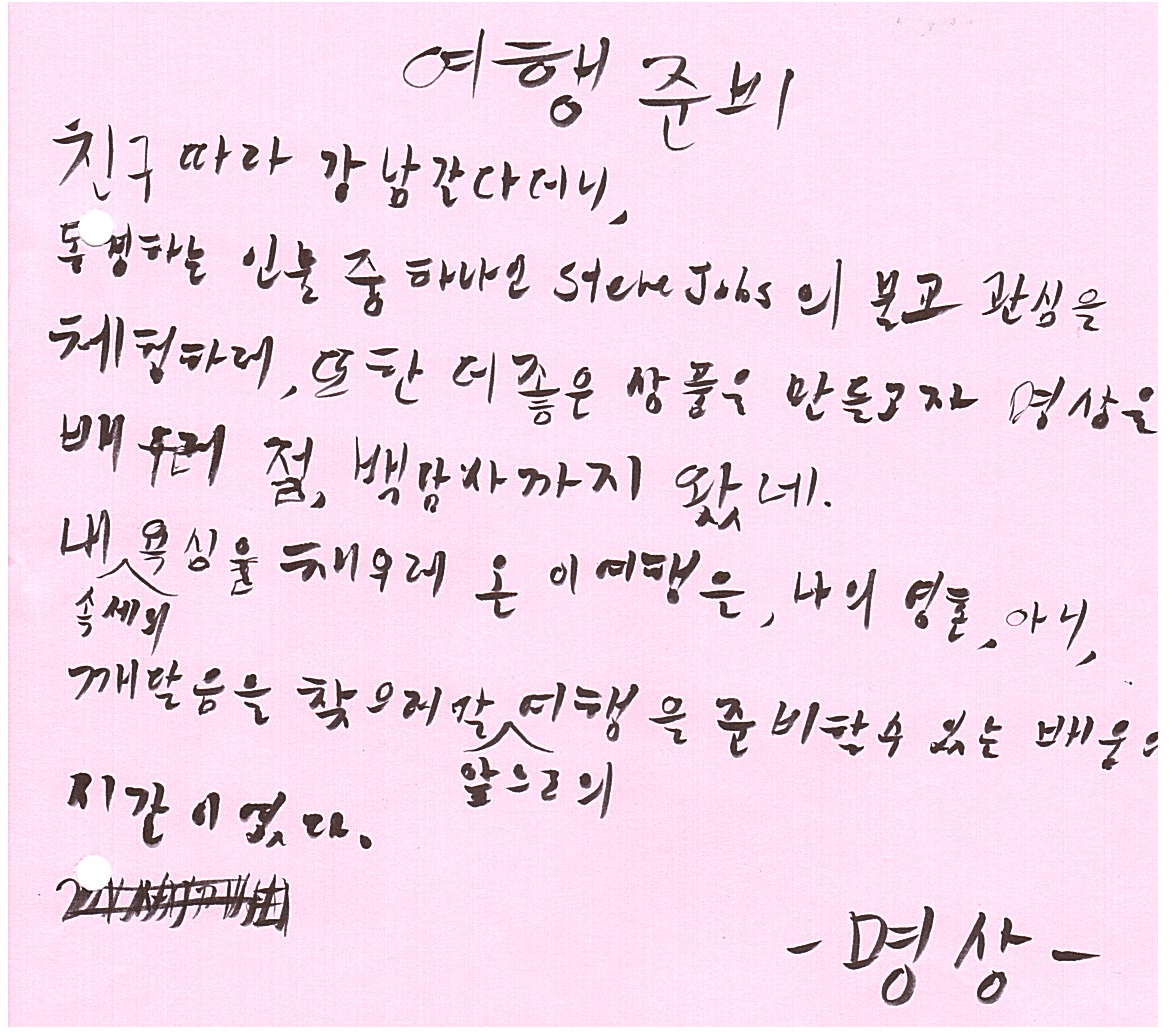 여행 준비
친구 따라 강남간다더니,
동경하는 인물 중 하나인 Steve Jobs의 불교 관심을
체험하러, 또한 더 좋은 상품을 만들고자 명상을
배우러 절, 백담사까지 왔네.
내 욕심을 채우러 온 이 여행은, 나의 영혼, 아니,
속세의
깨달음을 찾으러 갈 여행을 준비할 수 있는 배움의
앞으로의
시간이었다.
- 명상 -